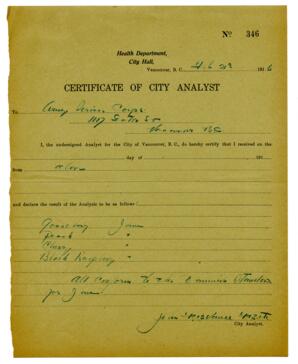 No 346
Health Department,
City Hall,
Vancouver, B. C. 191 6
CERTIFICATE OF CITY ANALYST
To Army Service Corps
Vancouver
I, the undersigned Analyst for the City of Vancouver, B. C., do hereby certify that I received on the
day of 191
from above
and declare the result of the Analysis to be as follows:
Gooseberry Jam
Peach "
Cherry "
Black Raspberry "
All conform to the standard
for Jam
City Analyst.